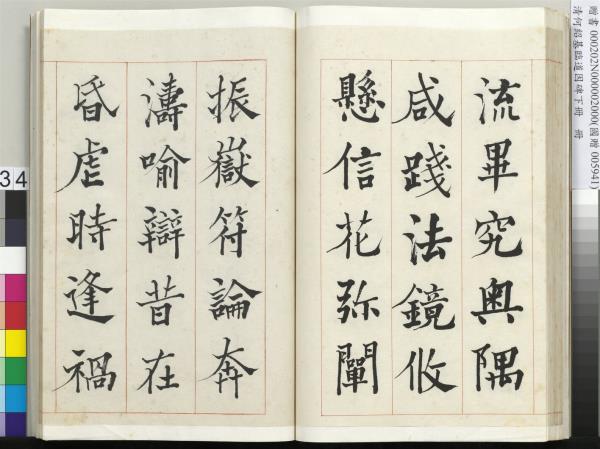 贈書 000202N000002000(國贈 005941)
清何紹基臨道因碑下冊 冊
流畢究奥隅
咸踐法鏡攸
懸信花弥闡
振嶽符論奔
濤喻辯昔在
昬虐時逢禍
34